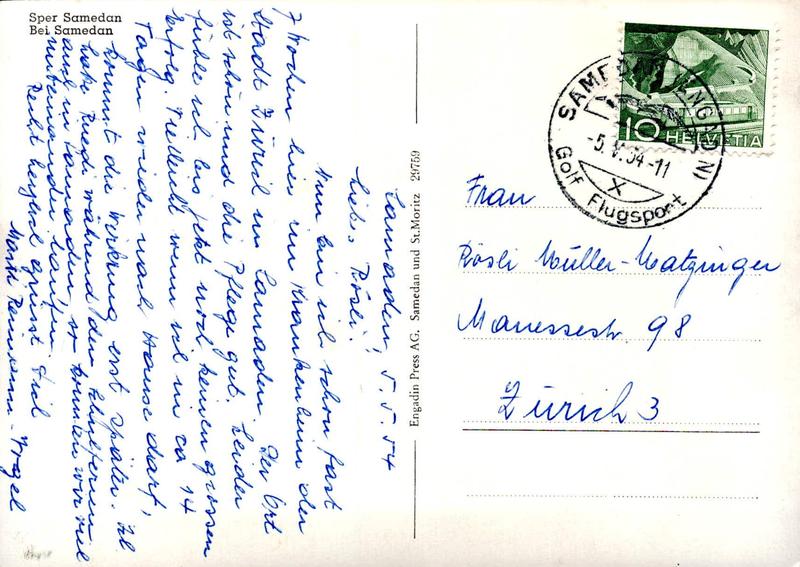 Sper Samedan
Bei Samedan
Samaden, 5.5.54
Liebes Rösli!
Nun bin ich schon fast
7 Wochen hier im Krankenheim der
Stadt Zürich in Samaden. Der Ort
ist schön und die Pflege gut. Leider
fühle ich bis jetzt noch keinen grossen
Erfolg. Vielleicht wenn ich in ca 14
Tagen wieder nach Hause darf,
kommt die Wirkung erst später. Ich
habe Ruedi während den
auch in Samaden so konnten wir viel
miteinander laufen.
Recht herzlich grüsst Dich
Engadin Press AG, Samedan und St. Moritz 29759
10 HELVETIA
SAMEDAN (ENGADIN)
-5.V.54-11
X
Golf Flugsport
Frau
Rösli Müller-Matzinger
Manessestr. 98
Zürich 3